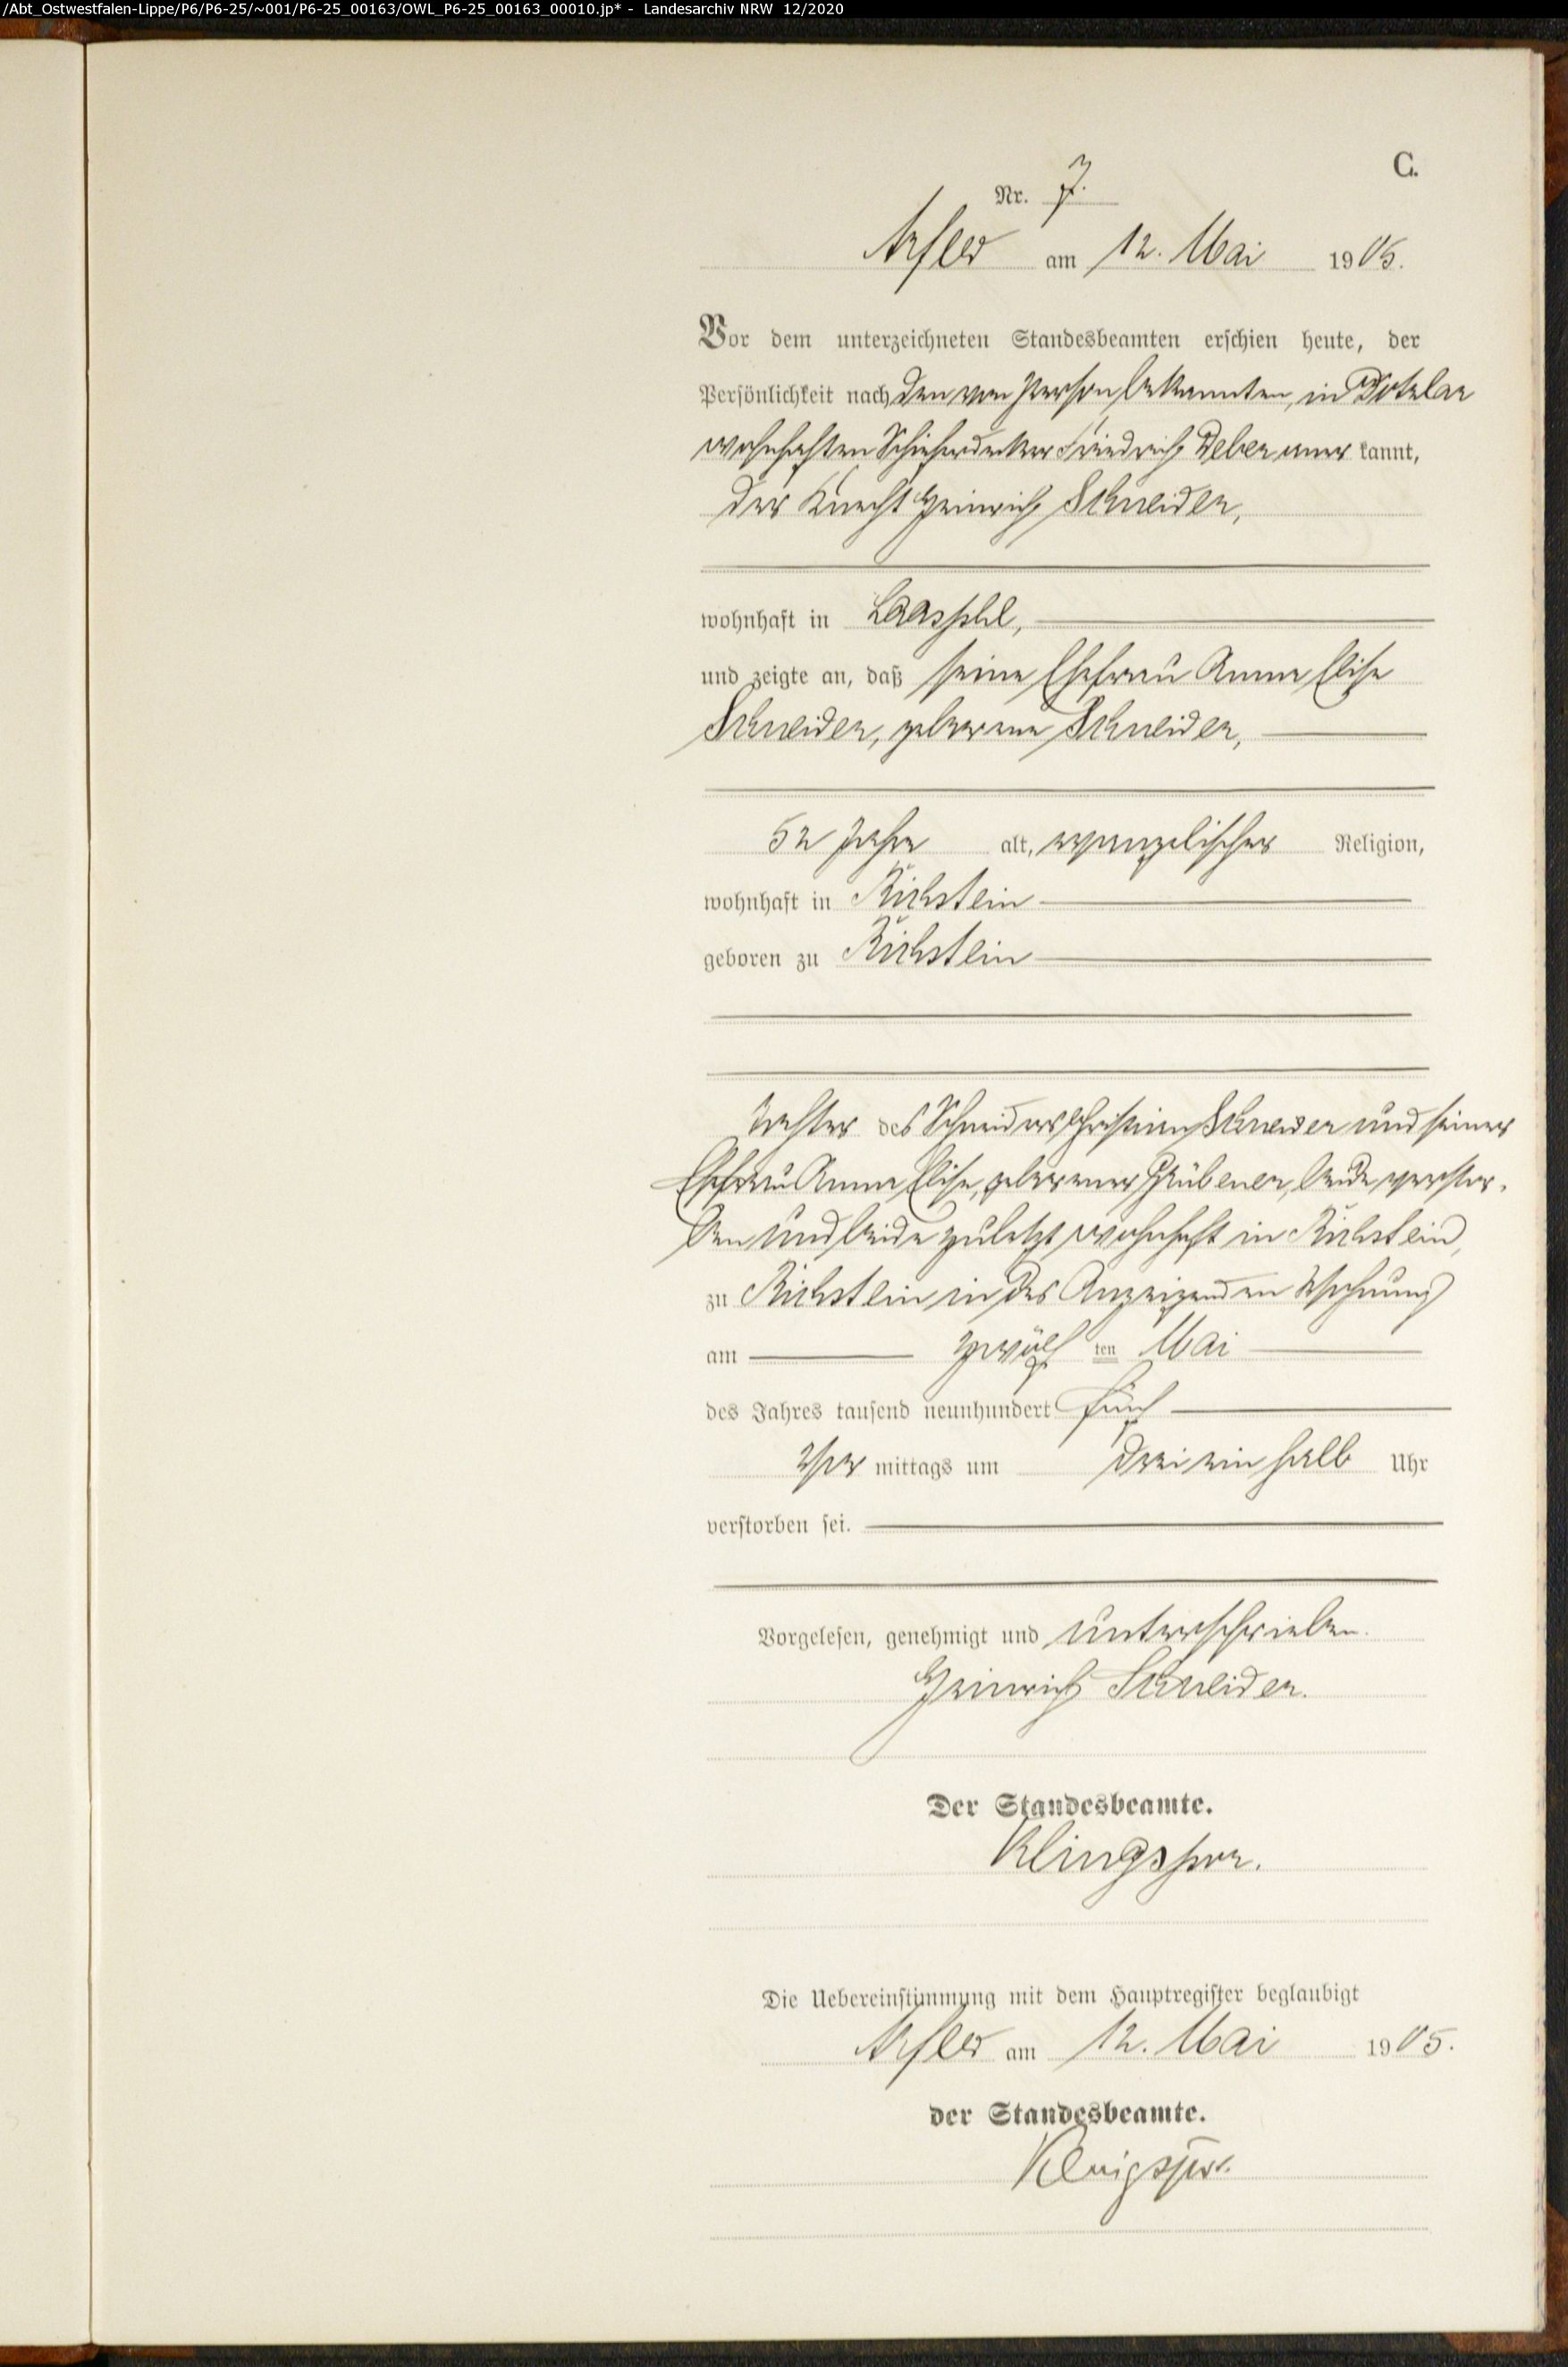 /Abt_Ostwestfalen-Lippe/P6/P6-25/~001/P6-25_00163/OWL_P6-25_00163_00010.jp* - Landesarchiv NRW 12/2020
C.
Nr. 7.
Arfeld am 12. Mai 1905.
Vor dem unterzeichneten Standesbeamten erschien heute, der
Persönlichkeit nach den von Person bekannten, in Dotzlar
wohnhaften Schieferdecker Friedrich aner kannt,
der Knecht Heinrich Schneider,
wohnhaft in Laasphe,
und zeigte an, daß seine Ehefrau Anna Elise
Schneider, geborene Schneider,
52 Jahre alt, evangelischer Religion,
wohnhaft in Richstein
geboren zu Richstein
Tochter des Schneiders Christian Schneider und seiner
Ehefrau Anna Elise, geborener beide verstor-
ben und beide zuletzt wohnhaft in Richstein,
zu Richstein in des Anzeigenden Wohnung
am zwölf ten Mai
des Jahres tausend neunhundert fünf
Vor mittags um drei ein halb Uhr
verstorben sei.
Vorgelesen, genehmigt und unterschrieben.
Heinrich Schneider.
Der Standesbeamte.
Klingspor.
Die Uebereinstimmung mit dem Hauptregister beglaubigt
Arfeld am 12. Mai 1905.
der Standesbeamte.
Klingspor.